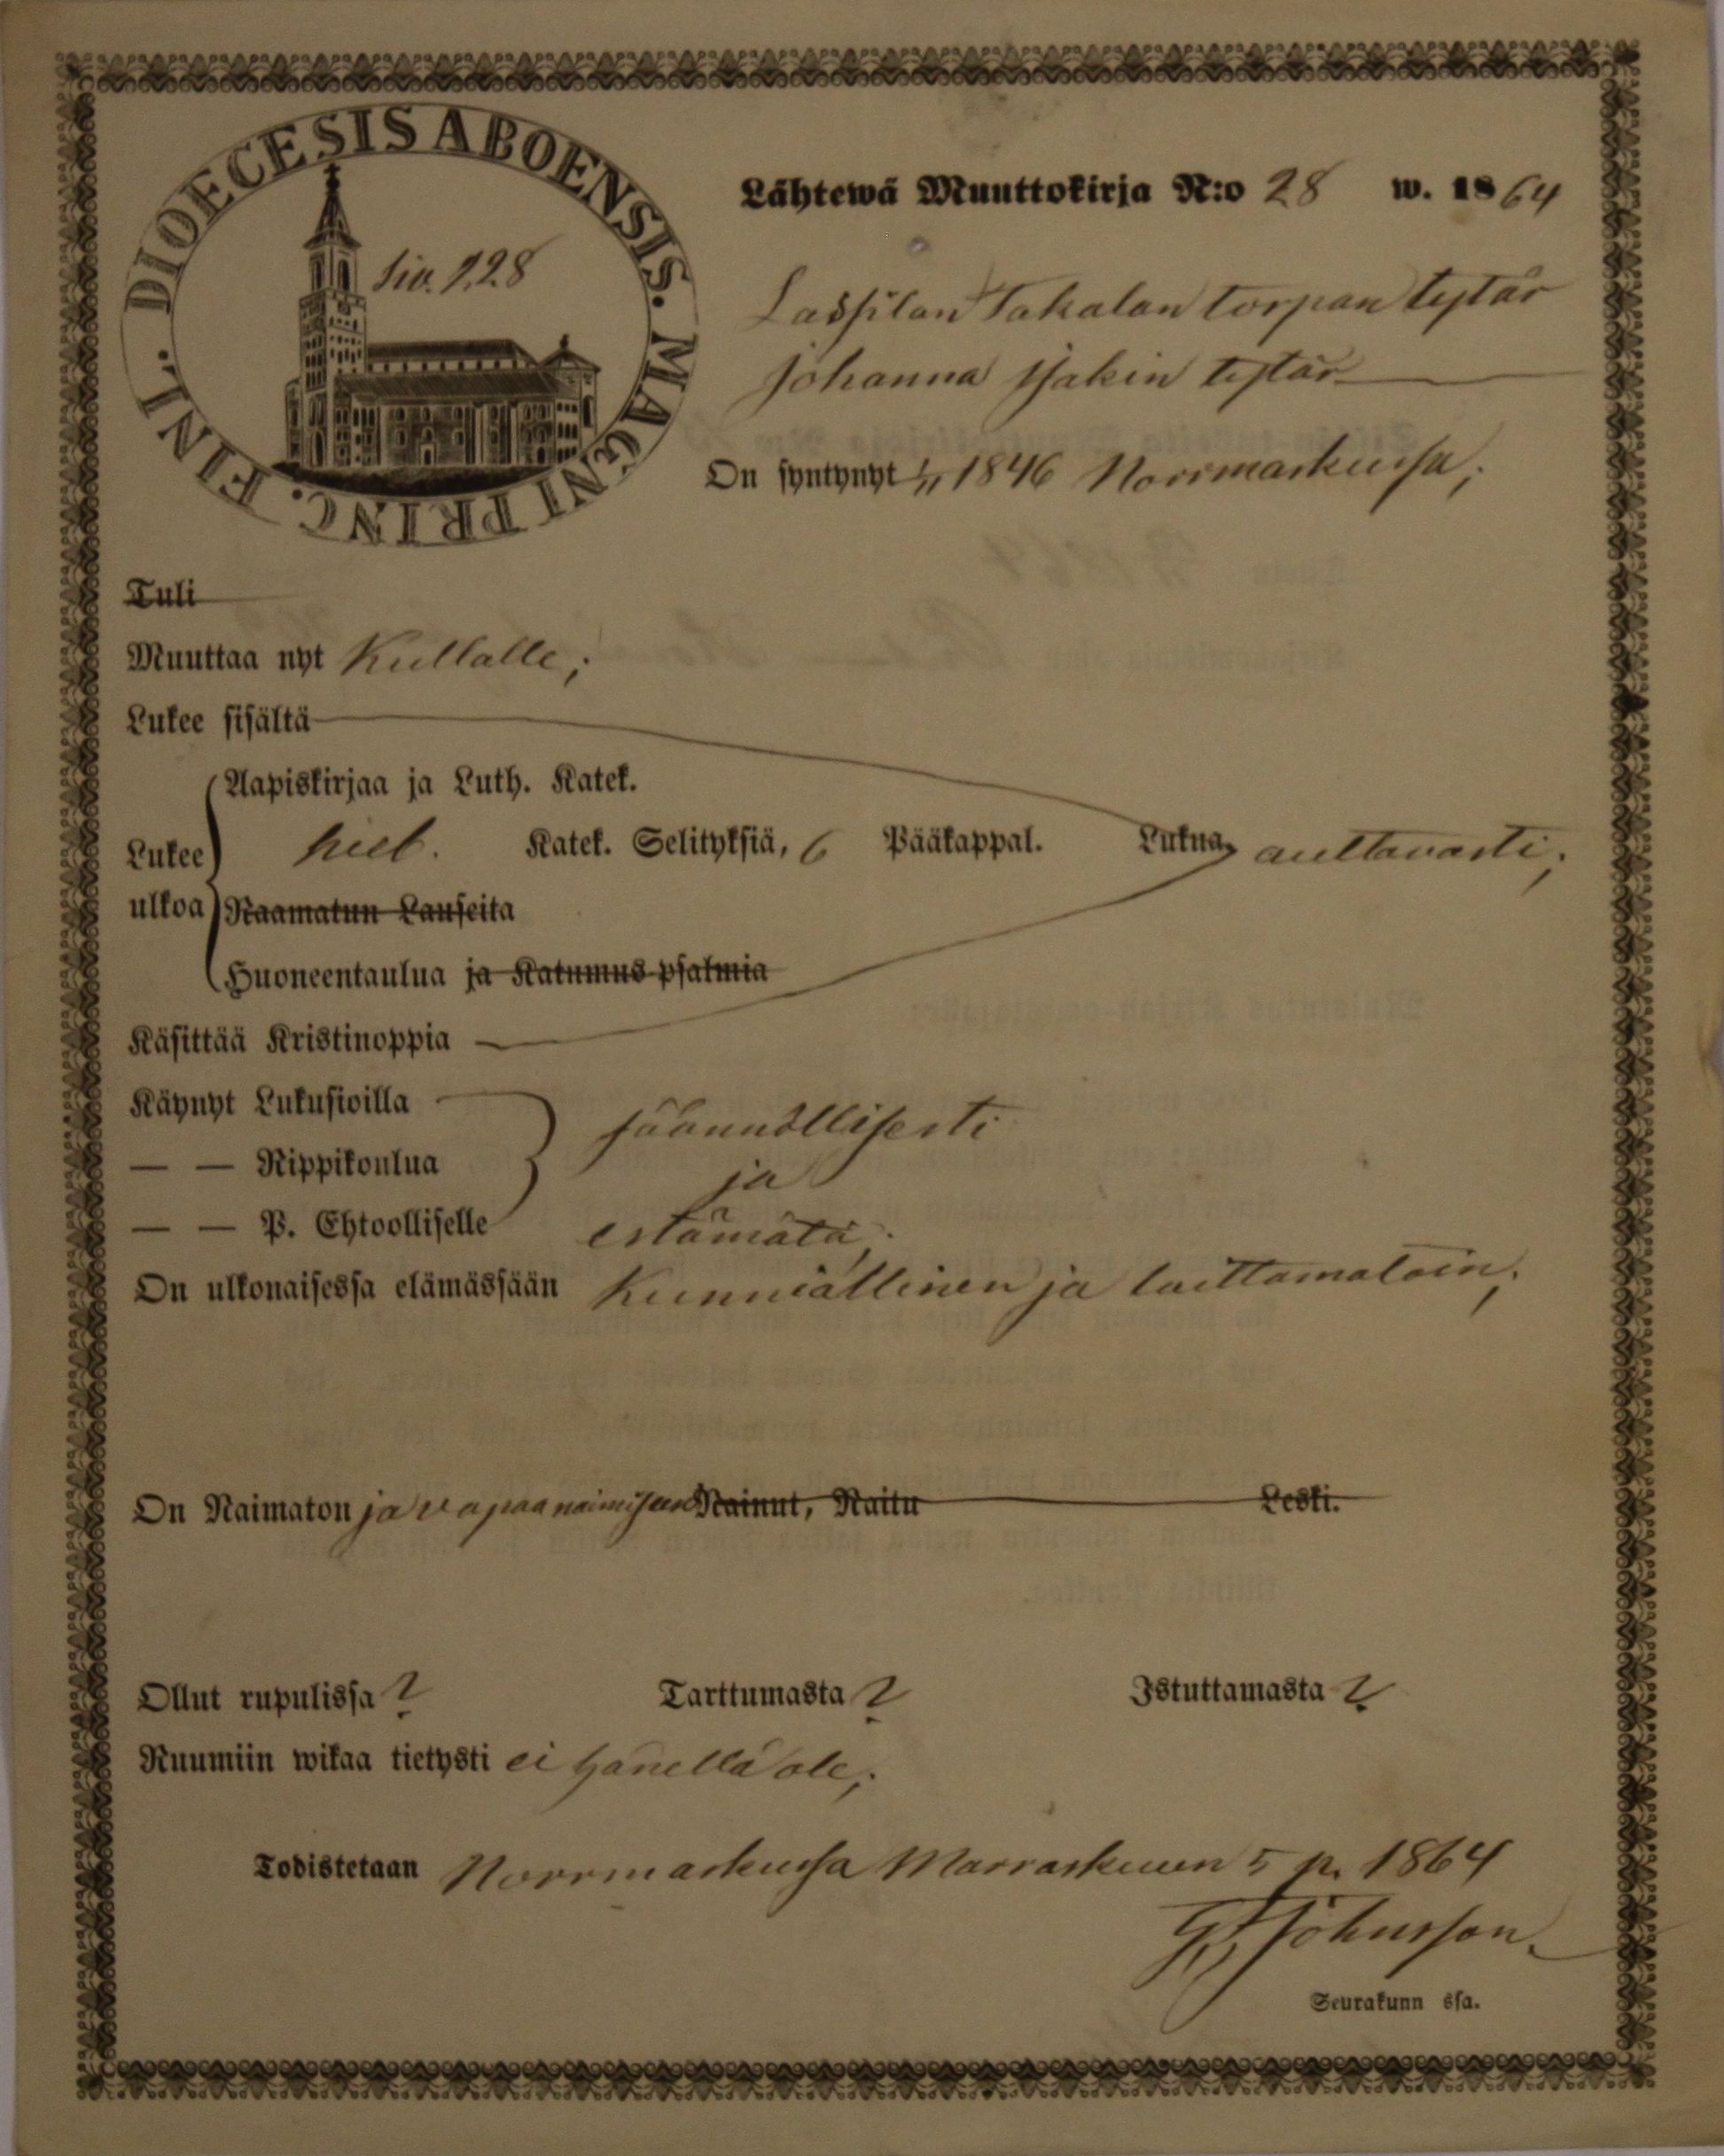 DIOECESIS ABOENSIS. MAGNI PRINC. FINL.
Siv. 228
Lähtewä Muuttokirja N:o 28 w. 1864
Lassilan Takalan torpan tytär
Johanna Isakin tytär
On syntynyt 1/11 1846 Norrmarkussa;
Tuli
Muuttaa nyt Kullalle;
Lukee sisältä
Aapiskirjaa ja Luth. Katek.
Lukee ulkoa
Katek. Selityksiä, 6 Pääkappal. Lukua, auttavasti;
Raamatun Lauseita
Huoneentaulua ja Katumus-psalmia
Käsittää Kristinoppia
Käynyt Lukusioilla
säännöllisesti
— — Rippikoulua
ja
— — P. Ehtoolliselle
estämätä;
On ulkonaisessa elämässään Kunniallinen ja laittamatoin;
On Naimaton ja vapaa naimiseen Nainut, Naitu Leski.
Ollut rupulissa ? Tarttumasta ? Istuttamasta ?
Ruumiin wikaa tietysti ei hänellä ole;
Todistetaan Norrmarkussa Marraskuun 5 p. 1864
Johnsson
Seurakunn ssa.